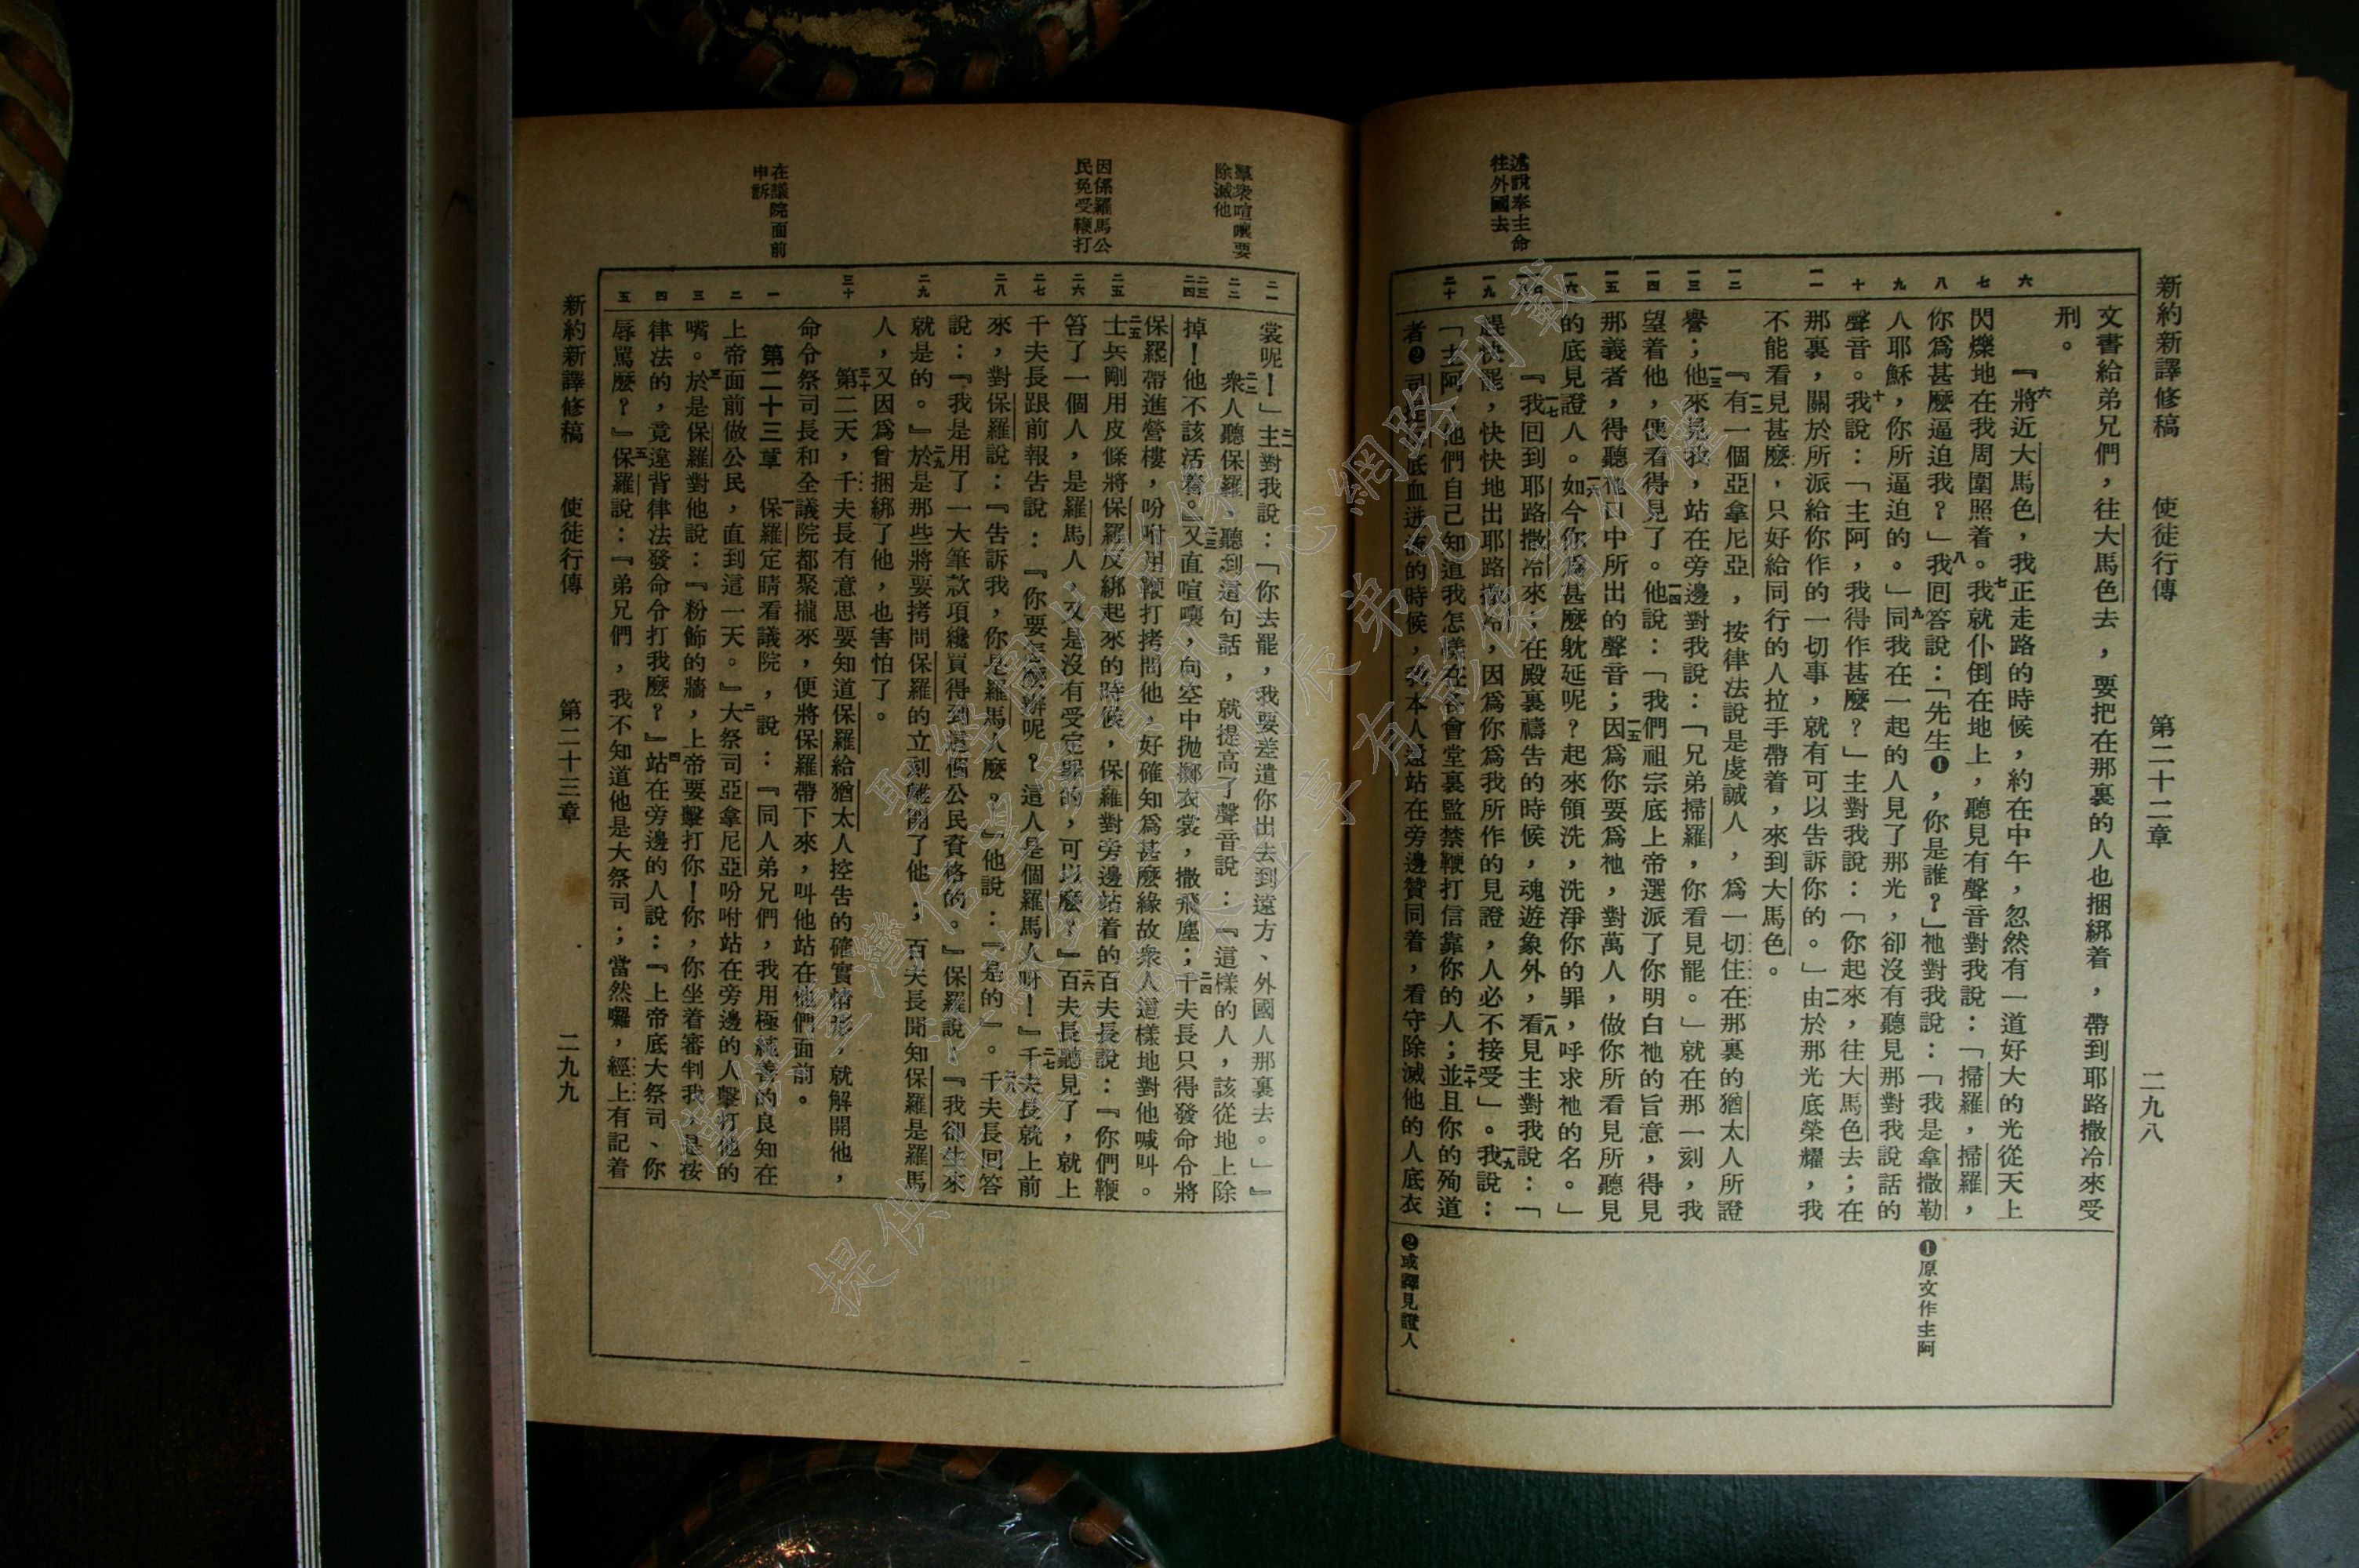 新約新譯修稿　使徒行傳　第二十二章　二九八
述說奉主命
往外國去
六
七
八
九
十
一一
一二
一三
一四
一五
一六
一七
一八
一九
二十
文書給弟兄們，往大馬色去，要把在那裏的人也捆綁着，帶到耶路撒冷來受
刑。
『六將近大馬色，我正走路的時候，約在中午，忽然有一道好大的光從天上
閃爍地在我周圍照着。七我就仆倒在地上，聽見有聲音對我說：「掃羅，掃羅，
你爲甚麼逼迫我？」八我回答說：「先生❶，你是誰？」祂對我說：「我是拿撒勒
人耶穌，你所逼迫的。」九同我在一起的人見了那光，卻沒有聽見那對我說話的
聲音。十我說：「主阿，我得作甚麼？」主對我說：「你起來，往大馬色去；在
那裏，關於所派給你作的一切事，就有可以告訴你的。」一一由於那光底榮耀，我
不能看見甚麽，只好給同行的人拉手帶着，來到大馬色。
『一二有一個亞拿尼亞，按律法說是虔誠人，爲一切住在那裏的猶太人所證
譽；一三他來見我，站在旁邊對我說：「兄弟掃羅，你看見罷。」就在那一刻，我
望着他，便看得見了。一四他說：「我們祖宗底上帝選派了你明白祂的旨意，得見
那義者，得聽祂口中所出的聲音；一五因爲你要爲祂，對萬人，做你所看見所聽見
的底見證人。一六如今你爲甚麼躭延呢？起來領洗，洗淨你的罪，呼求祂的名。」
『一七我回到耶路撒冷來；在殿裏禱告的時候，魂遊象外，一八看見主對我說：「
趕快罷，快快地出耶路撒冷，因爲你爲我所作的見證，人必不接受」。一九我說：
「主阿，他們自己知道我怎樣在各會堂裏監禁鞭打信靠你的人；二十並且你的殉道
者❷司提反底血迸流的時候，我本人還站在旁邊贊同着，看守除滅他的人底衣
❶原文作主阿
❷或譯見證人
羣衆喧嚷要
除滅他
因係羅馬公
民免受鞭打
在議院面前
申訴
二一
二二
二三
二四
二五
二六
二七
二八
二九
三十
一
二
三
四
五
裳呢！」二一主對我說：「你去罷，我要差遣你出去到遠方、外國人那裏去。」』
二二衆人聽保羅，聽到這句話，就提高了聲音說：『這樣的人，該從地上除
掉！他不該活着。』二三又直喧嚷，向空中拋擲衣裳，撒飛塵；二四千夫長只得發命令將
保羅帶進營樓，吩咐用鞭打拷問他，好確知爲甚麼緣故衆人這樣地對他喊叫。
二五士兵剛用皮條將保羅反綁起來的時候，保羅對旁邊站着的百夫長說：『你們鞭
笞了一個人，是羅馬人，又是沒有受定罪的，可以麼？』二六百夫長聽見了，就上
千夫長跟前報告說：『你要怎麽辦呢？這人是個羅馬人呀！』二七千夫長就上前
來，對保羅說：『告訴我，你是羅馬人麽？』他說：『是的』。二八千夫長回答
說：『我是用了一大筆款項纔買得到這個公民資格的。』保羅說：『我卻生來
就是的。』二九於是那些將要拷問保羅的立刻離開了他；百夫長聞知保羅是羅馬
人，又因爲曾捆綁了他，也害怕了。
三十第二天，千夫長有意思要知道保羅給猶太人控告的確實情形，就解開他，
命令祭司長和全議院都聚攏來，便將保羅帶下來，叫他站在他們面前。
第二十三章　一保羅定睛看議院，說：『同人弟兄們，我用極純善的良知在
上帝面前做公民，直到這一天。』二大祭司亞拿尼亞吩咐站在旁邊的人擊打他的
嘴。三於是保羅對他說：『粉飾的牆，上帝要擊打你！你，你坐着審判我，是按
律法的，竟違背律法發命令打我麽？』四站在旁邊的人說：『上帝底大祭司、你
辱罵麽？』五保羅說：『弟兄們，我不知道他是大祭司；當然囉，經上有記着
新約新譯修稿　使徒行傳　第二十三章　二九九